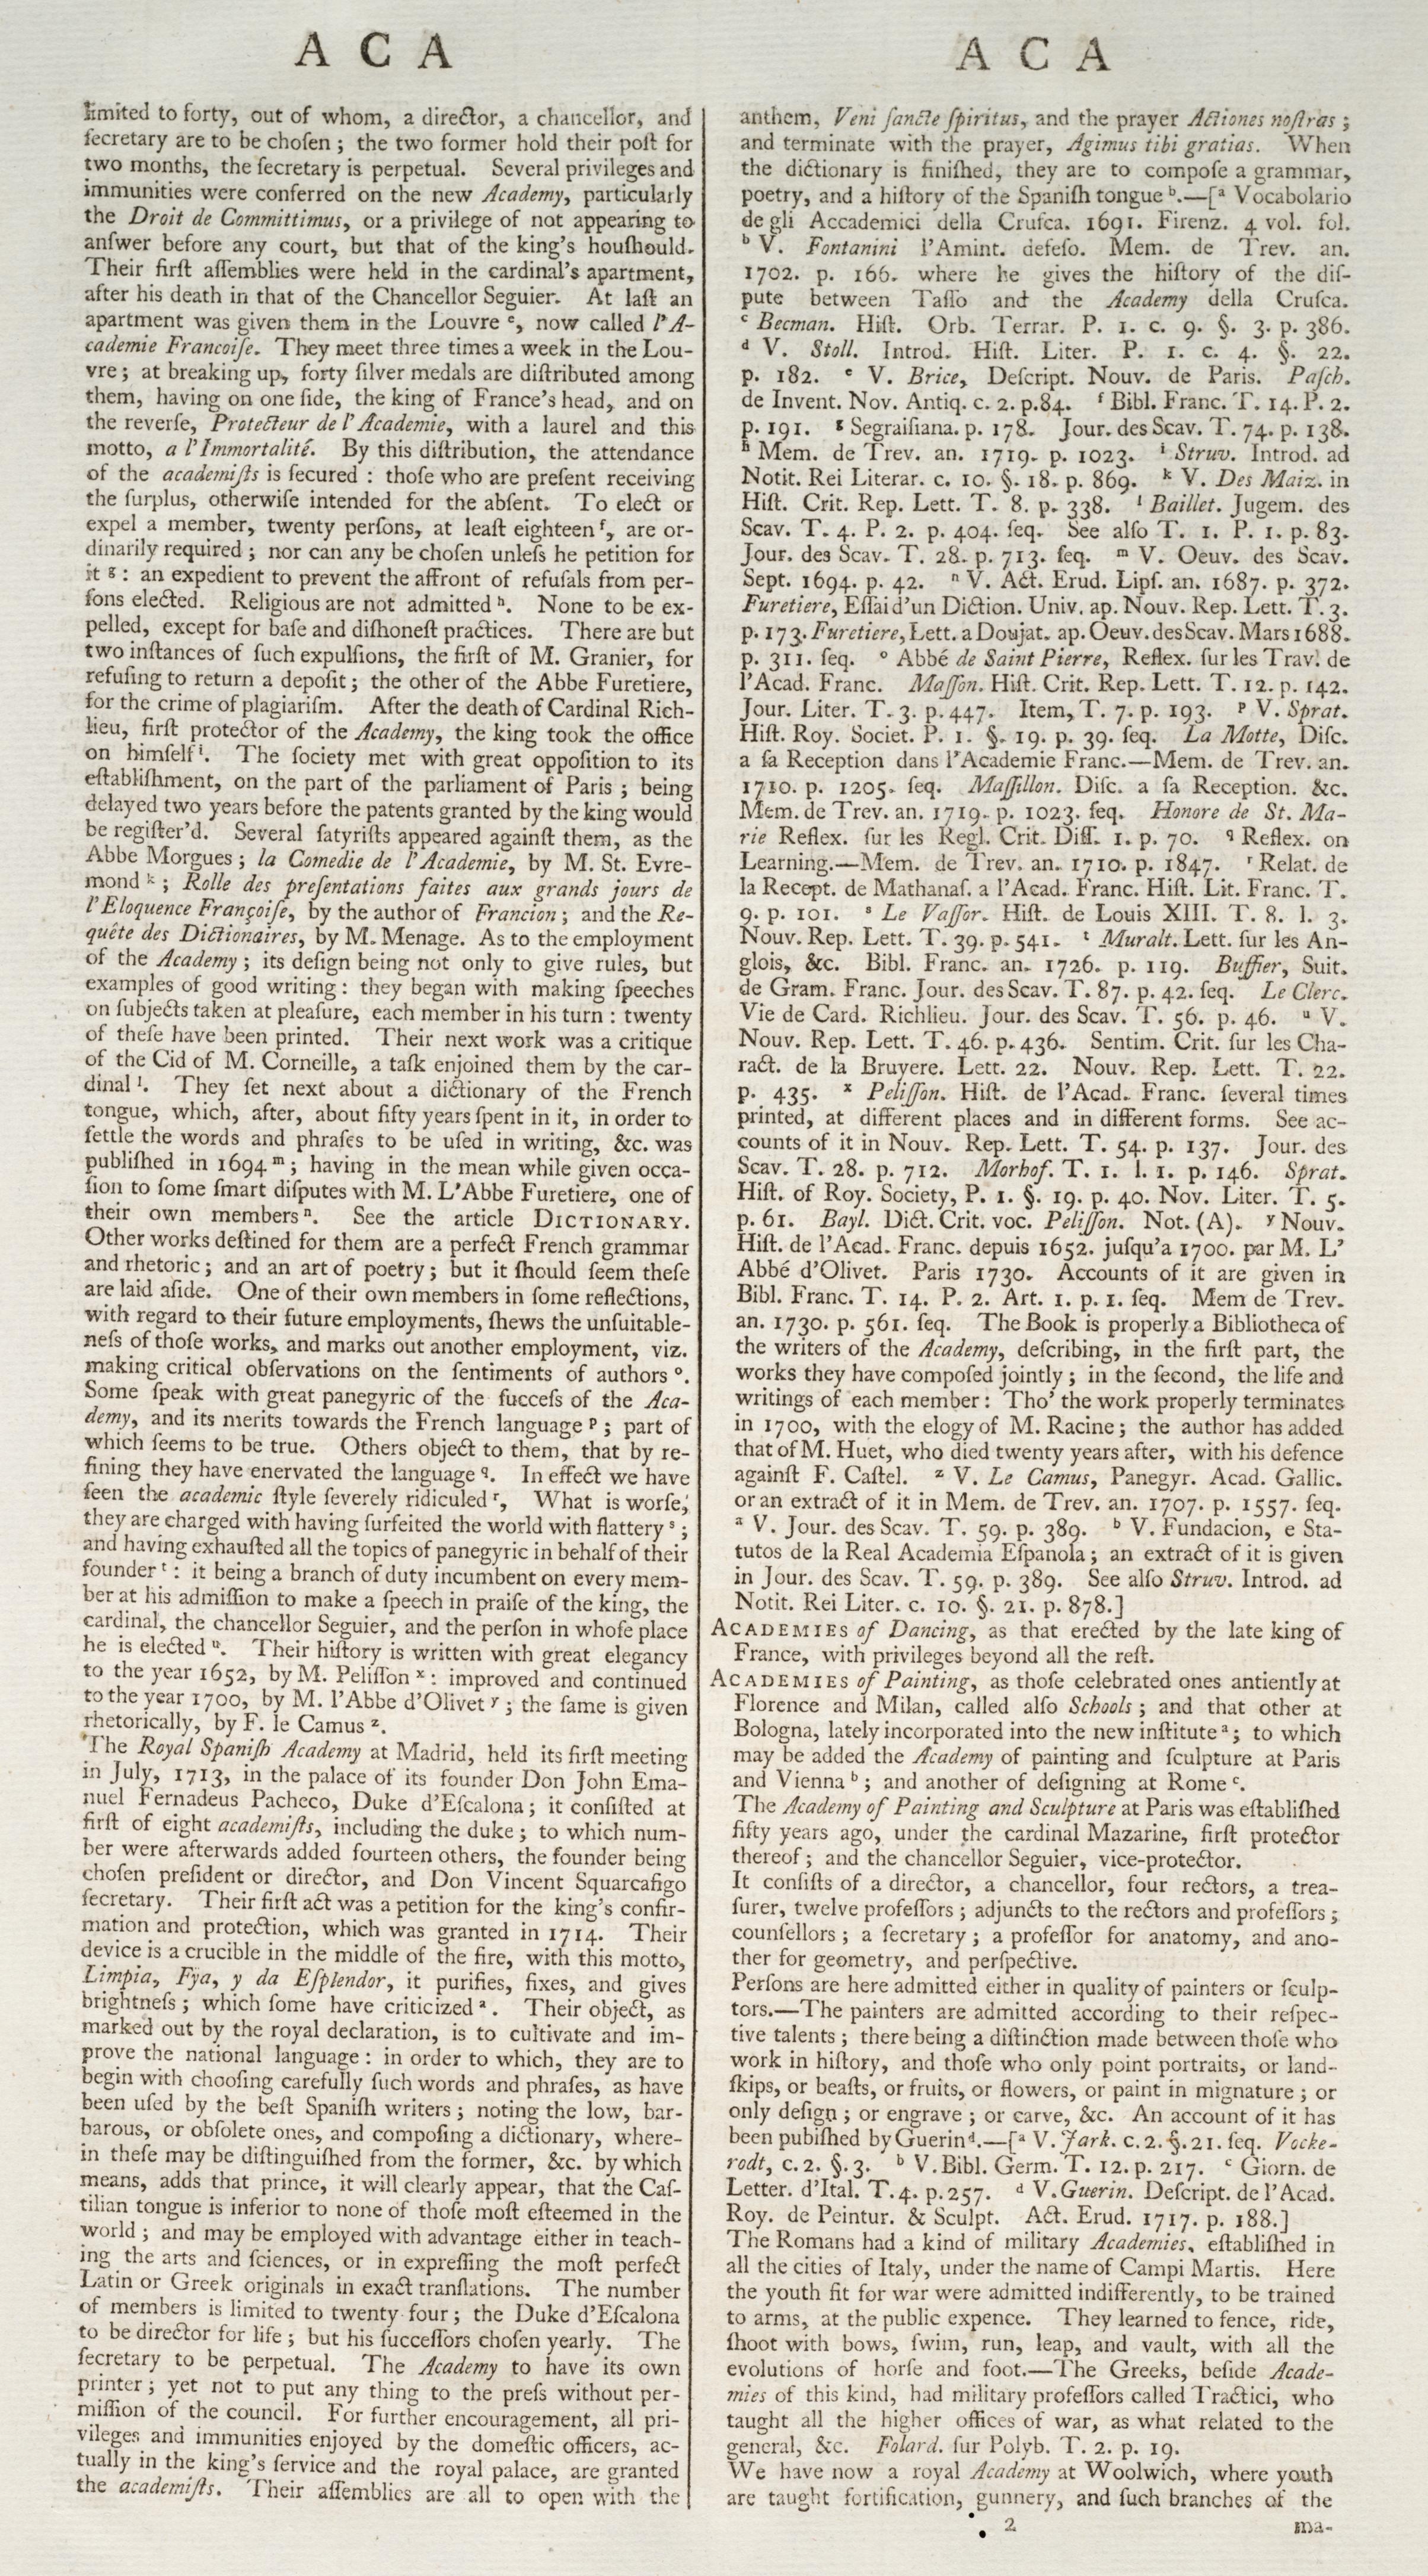 A C A
limited to forty, out of whom, a director, a chancellor, and
ſecretary are to be choſen ; the two former hold their poſt for
two months, the ſecretary is perpetual. Several privileges and
immunities were conferred on the new Academy, particularly
the Droit de Committimus, or a privilege of not appearing to
anſwer before any court, but that of the king's houſhould.
Their firſt aſſemblies were held in the cardinal's apartment,
after his death in that of the Chancellor Seguier. At laſt an
apartment was given them in the Louvre e, now called l'A-
cademie Francoiſe. They meet three times a week in the Lou-
vre ; at breaking up, forty ſilver medals are diſtributed among
them, having on one ſide, the king of France's head, and on
the reverſe, Protecteur de l'Academie, with a laurel and this
motto, a l'Immortalité. By this diſtribution, the attendance
of the academiſts is ſecured : thoſe who are preſent receiving
the ſurplus, otherwiſe intended for the abſent. To elect or
expel a member, twenty perſons, at leaſt eighteen f, are or-
dinarily required ; nor can any be choſen unleſs he petition for
it g : an expedient to prevent the affront of refuſals from per-
ſons elected. Religious are not admitted h. None to be ex-
pelled, except for baſe and diſhoneſt practices. There are but
two inſtances of ſuch expulſions, the firſt of M. Granier, for
refuſing to return a depoſit ; the other of the Abbe Furetiere,
for the crime of plagiariſm. After the death of Cardinal Rich-
lieu, firſt protector of the Academy, the king took the office
on himſelf i. The ſociety met with great oppoſition to its
eſtabliſhment, on the part of the parliament of Paris ; being
delayed two years before the patents granted by the king would
be regiſter'd. Several ſatyriſts appeared againſt them, as the
Abbe Morgues ; la Comedie de l'Academie, by M. St. Evre-
mond k ; Rolle des preſentations faites aux grands jours de
l'Eloquence Françoiſe, by the author of Francion ; and the Re-
quéte des Dictionaires, by M. Menage. As to the employment
of the Academy ; its deſign being not only to give rules, but
examples of good writing : they began with making ſpeeches
on ſubjects taken at pleaſure, each member in his turn : twenty
of theſe have been printed. Their next work was a critique
of the Cid of M. Corneille, a taſk enjoined them by the car-
dinal l. They ſet next about a dictionary of the French
tongue, which, after, about fifty years ſpent in it, in order to
ſettle the words and phraſes to be uſed in writing, &c. was
publiſhed in 1694 m ; having in the mean while given occa-
ſion to ſome ſmart diſputes with M. L'Abbe Furetiere, one of
their own members n. See the article DICTIONARY.
Other works deſtined for them are a perfect French grammar
and rhetoric ; and an art of poetry ; but it ſhould ſeem theſe
are laid aſide. One of their own members in ſome reflections,
with regard to their future employments, ſhews the unſuitable-
neſs of thoſe works, and marks out another employment, viz.
making critical obſervations on the ſentiments of authors o.
Some ſpeak with great panegyric of the ſucceſs of the Aca-
demy, and its merits towards the French language p ; part of
which ſeems to be true. Others object to them, that by re-
fining they have enervated the language q. In effect we have
ſeen the academic ſtyle ſeverely ridiculed r, What is worſe,
they are charged with having ſurfeited the world with flattery s ;
and having exhauſted all the topics of panegyric in behalf of their
founder t : it being a branch of duty incumbent on every mem-
ber at his admiſſion to make a ſpeech in praiſe of the king, the
cardinal, the chancellor Seguier, and the perſon in whoſe place
he is elected u. Their hiſtory is written with great elegancy
to the year 1652, by M. Peliſſon x : improved and continued
to the year 1700, by M. l'Abbe d'Olivet y ; the ſame is given
rhetorically, by F. le Camus z.
The Royal Spaniſh Academy at Madrid, held its firſt meeting
in July, 1713, in the palace of its founder Don John Ema-
nuel Fernadeus Pacheco, Duke d'Eſcalona ; it conſiſted at
firſt of eight academiſts, including the duke ; to which num-
ber were afterwards added fourteen others, the founder being
choſen preſident or director, and Don Vincent Squarcafigo
ſecretary. Their firſt act was a petition for the king's confir-
mation and protection, which was granted in 1714. Their
device is a crucible in the middle of the fire, with this motto,
Limpia, Fya, y da Eſplendor, it purifies, fixes, and gives
brightneſs ; which ſome have criticized a. Their object, as
marked out by the royal declaration, is to cultivate and im-
prove the national language : in order to which, they are to
begin with chooſing carefully ſuch words and phraſes, as have
been uſed by the beſt Spaniſh writers ; noting the low, bar-
barous, or obſolete ones, and compoſing a dictionary, where-
in theſe may be diſtinguiſhed from the former, &c. by which
means, adds that prince, it will clearly appear, that the Caſ-
tilian tongue is inferior to none of thoſe moſt eſteemed in the
world ; and may be employed with advantage either in teach-
ing the arts and ſciences, or in expreſſing the moſt perfect
Latin or Greek originals in exact tranſlations. The number
of members is limited to twenty four ; the Duke d'Eſcalona
to be director for life ; but his ſucceſſors choſen yearly. The
ſecretary to be perpetual. The Academy to have its own
printer ; yet not to put any thing to the preſs without per-
miſſion of the council. For further encouragement, all pri-
vileges and immunities enjoyed by the domeſtic officers, ac-
tually in the king's ſervice and the royal palace, are granted
the academiſts. Their aſſemblies are all to open with the
A C A
anthem, Veni ſancte ſpiritus, and the prayer Actiones noſtras ;
and terminate with the prayer, Agimus tibi gratias. When
the dictionary is finiſhed, they are to compoſe a grammar,
poetry, and a hiſtory of the Spaniſh tongue b.—[a Vocabolario
de gli Accademici della Cruſca. 1691. Firenz. 4 vol. fol.
b V. Fontanini l'Amint. defeſo. Mem. de Trev. an.
1702. p. 166. where he gives the hiſtory of the diſ-
pute between Taſſo and the Academy della Cruſca.
c Becman. Hiſt. Orb. Terrar. P. 1. c. 9. §. 3. p. 386.
d V. Stoll. Introd. Hiſt. Liter. P. 1. c. 4. §. 22.
p. 182. e V. Brice, Deſcript. Nouv. de Paris. Paſch.
de Invent. Nov. Antiq. c. 2. p. 84. f Bibl. Franc. T. 14. P. 2.
p. 191. g Segraiſiana. p. 178. Jour. des Scav. T. 74. p. 138.
h Mem. de Trev. an. 1719. p. 1023. i Struv. Introd. ad
Notit. Rei Literar. c. 10. §. 18. p. 869. k V. Des Maiz. in
Hiſt. Crit. Rep. Lett. T. 8. p. 338. l Baillet. Jugem. des
Scav. T. 4. P. 2. p. 404. ſeq. See alſo T. 1. P. 1. p. 83.
Jour. des Scav. T. 28. p. 713. ſeq. m V. Oeuv. des Scav.
Sept. 1694. p. 42. n V. Act. Erud. Lipſ. an. 1687. p. 372.
Furetiere, Eſſai d'un Diction. Univ. ap. Nouv. Rep. Lett. T. 3.
p. 173. Furetiere, Lett. a Doujat. ap. Oeuv. des Scav. Mars 1688.
p. 311. ſeq. o Abbé de Saint Pierre, Reflex. ſur les Trav. de
l'Acad. Franc. Maſſon. Hiſt. Crit. Rep. Lett. T. 12. p. 142.
Jour. Liter. T. 3. p. 447. Item, T. 7. p. 193. p V. Sprat.
Hiſt. Roy. Societ. P. 1. §. 19. p. 39. ſeq. La Motte, Diſc.
a ſa Reception dans l'Academie Franc.—Mem. de Trev. an.
1710. p. 1205. ſeq. Maſſillon. Diſc. a ſa Reception. &c.
Mem. de Trev. an. 1719. p. 1023. ſeq. Honore de St. Ma-
rie Reflex. ſur les Regl. Crit. Diſſ. 1. p. 70. q Reflex. on
Learning.—Mem. de Trev. an. 1710. p. 1847. r Relat. de
la Recept. de Mathanaſ. a l'Acad. Franc. Hiſt. Lit. Franc. T.
9. p. 101. s Le Vaſſor. Hiſt. de Louis XIII. T. 8. l. 3.
Nouv. Rep. Lett. T. 39. p. 541. t Muralt. Lett. ſur les An-
glois, &c. Bibl. Franc. an. 1726. p. 119. Buffier, Suit.
de Gram. Franc. Jour. des Scav. T. 87. p. 42. ſeq. Le Clerc.
Vie de Card. Richlieu. Jour. des Scav. T. 56. p. 46. u V.
Nouv. Rep. Lett. T. 46. p. 436. Sentim. Crit. ſur les Cha-
ract. de la Bruyere. Lett. 22. Nouv. Rep. Lett. T. 22.
p. 435. x Peliſſon. Hiſt. de l'Acad. Franc. ſeveral times
printed, at different places and in different forms. See ac-
counts of it in Nouv. Rep. Lett. T. 54. p. 137. Jour. des
Scav. T. 28. p. 712. Morhof. T. 1. l. 1. p. 146. Sprat.
Hiſt. of Roy. Society, P. 1. §. 19. p. 40. Nov. Liter. T. 5.
p. 61. Bayl. Dict. Crit. voc. Peliſſon. Not. (A). y Nouv.
Hiſt. de l'Acad. Franc. depuis 1652. juſqu'a 1700. par M. L'
Abbé d'Olivet. Paris 1730. Accounts of it are given in
Bibl. Franc. T. 14. P. 2. Art. 1. p. 1. ſeq. Mem de Trev.
an. 1730. p. 561. ſeq. The Book is properly a Bibliotheca of
the writers of the Academy, deſcribing, in the firſt part, the
works they have compoſed jointly ; in the ſecond, the life and
writings of each member : Tho' the work properly terminates
in 1700, with the elogy of M. Racine ; the author has added
that of M. Huet, who died twenty years after, with his defence
againſt F. Caſtel. z V. Le Camus, Panegyr. Acad. Gallic.
or an extract of it in Mem. de Trev. an. 1707. p. 1557. ſeq.
a V. Jour. des Scav. T. 59. p. 389. b V. Fundacion, e Sta-
tutos de la Real Academia Eſpanola ; an extract of it is given
in Jour. des Scav. T. 59. p. 389. See alſo Struv. Introd. ad
Notit. Rei Liter. c. 10. §. 21. p. 878.]
ACADEMIES of Dancing, as that erected by the late king of
France, with privileges beyond all the reſt.
ACADEMIES of Painting, as thoſe celebrated ones antiently at
Florence and Milan, called alſo Schools ; and that other at
Bologna, lately incorporated into the new inſtitute a ; to which
may be added the Academy of painting and ſculpture at Paris
and Vienna b ; and another of deſigning at Rome c.
The Academy of Painting and Sculpture at Paris was eſtabliſhed
fifty years ago, under the cardinal Mazarine, firſt protector
thereof ; and the chancellor Seguier, vice-protector.
It conſiſts of a director, a chancellor, four rectors, a trea-
ſurer, twelve profeſſors ; adjuncts to the rectors and profeſſors ;
counſellors ; a ſecretary ; a profeſſor for anatomy, and ano-
ther for geometry, and perſpective.
Perſons are here admitted either in quality of painters or ſculp-
tors.—The painters are admitted according to their reſpec-
tive talents ; there being a diſtinction made between thoſe who
work in hiſtory, and thoſe who only point portraits, or land-
ſkips, or beaſts, or fruits, or flowers, or paint in mignature ; or
only deſign ; or engrave ; or carve, &c. An account of it has
been pubiſhed by Guerin d.—[a V. Jark. c. 2. §. 21. ſeq. Vocke-
rodt, c. 2. §. 3. b V. Bibl. Germ. T. 12. p. 217. c Giorn. de
Letter. d'Ital. T. 4. p. 257. d V. Guerin. Deſcript. de l'Acad.
Roy. de Peintur. & Sculpt. Act. Erud. 1717. p. 188.]
The Romans had a kind of military Academies, eſtabliſhed in
all the cities of Italy, under the name of Campi Martis. Here
the youth fit for war were admitted indifferently, to be trained
to arms, at the public expence. They learned to fence, ride,
ſhoot with bows, ſwim, run, leap, and vault, with all the
evolutions of horſe and foot.—The Greeks, beſide Acade-
mies of this kind, had military profeſſors called Tractici, who
taught all the higher offices of war, as what related to the
general, &c. Folard. ſur Polyb. T. 2. p. 19.
We have now a royal Academy at Woolwich, where youth
are taught fortification, gunnery, and ſuch branches of the
2 ma-